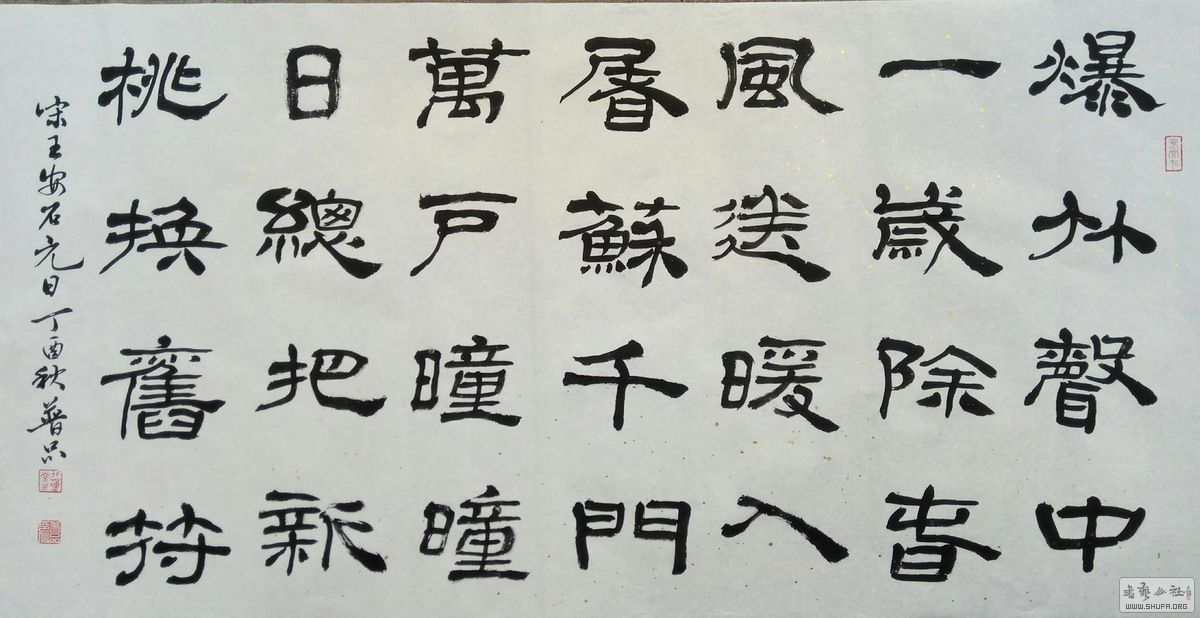 爆竹聲中
一歲除春
風送暖入
屠蘇千門
萬戶曈曈
日總把新
桃換舊符
宋王安石元日丁酉秋普
书艺公社
WWW.SHUFA.ORG